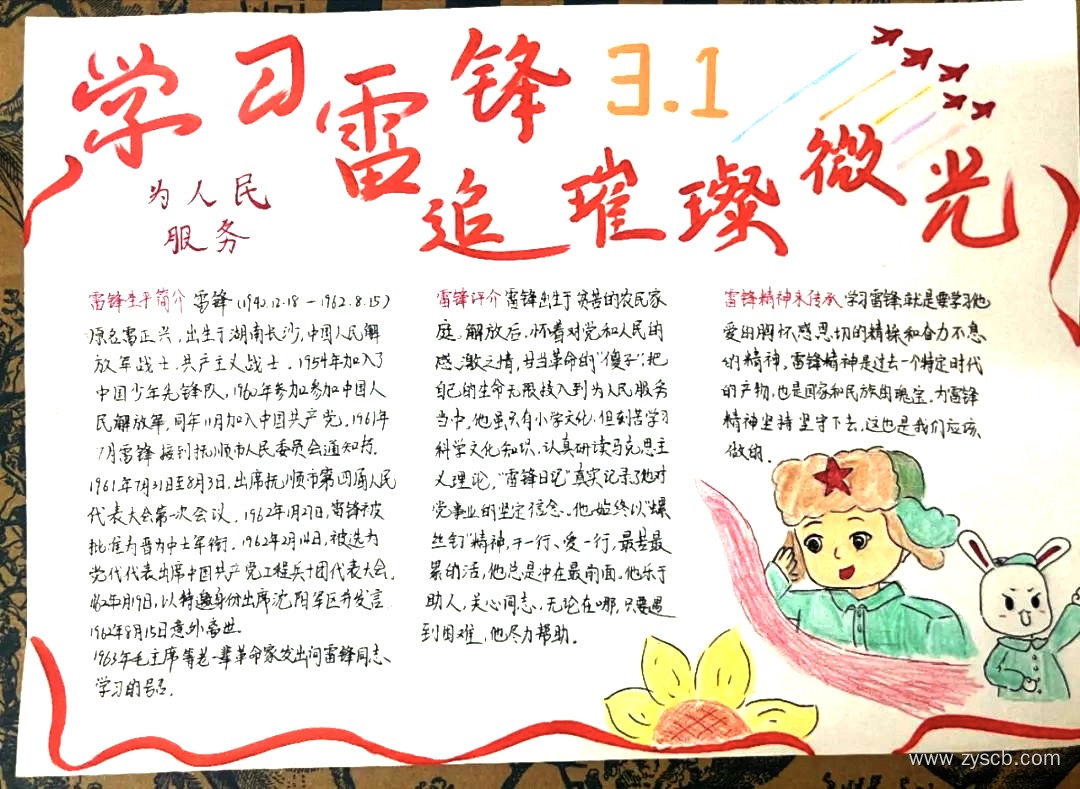 学习雷锋 3.1
追璀璨微光
为人民
服务
雷锋生平简介 雷锋(1940.12.18-1962.8.15)
原名雷正兴,出生于湖南长沙,中国人民解
放军战士,共产主义战士。1954年加入了
中国少年先锋队,1960年参加参加中国人
民解放军,同年11月加入中国共产党。1961年
7月雷锋接到抚顺市人民委员会通知将。
1961年7月31日至8月3日,出席抚顺市第四届人民
代表大会第一次会议。1962年1月27日,雷锋被
批准为晋为中士军衔。1962年2月14日,被选为
党代代表出席中国共产党工程兵十团代表大会。
62年2月19日,以特邀身份出席沈阳军区并发言
1962年8月15日意外离世。
1963年毛主席等老一辈革命家发出向雷锋同志、
学习的号召。
雷锋评介 雷锋出生于贫苦的农民家
庭,解放后,怀着对党和人民的
感激之情,甘当革命的"傻子",把
自己的生命无限投入到为人民服务
当中。他虽只有小学文化,但刻苦学习
科学文化知识,认真研读马克思主
义理论,"雷锋日记"真实记录了他对
党事业的坚定信念。他始终以"螺
丝钉"精神,干一行、爱一行,最苦最
累的活,他总是冲在最前面。他乐于
助人,关心同志,无论在哪,只要遇
到困难,他尽力帮助。
雷锋精神来传承 学习雷锋,就是要学习他
爱的胸怀感恩切的精操和奋力不息
的精神,雷锋精神是过去一个特定时代
的产物,也是国家和民族的瑰宝。为雷锋
精神坚持坚守下去,这也是我们应该
做的。
www.zyscb.com